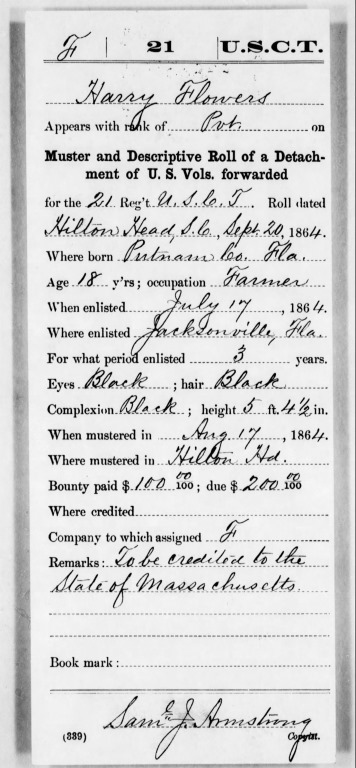 F | 21 | U.S.C.T.
Harry Flowers
Appears with rank of Pvt. on
Muster and Descriptive Roll of a Detach-
ment of U. S. Vols. forwarded
for the 21 Reg't U.S.C.T. Roll dated
Hilton Head, S.C., Sept. 20, 1864.
Where born Putnam Co. Fla.
Age 18 y'rs; occupation Farmer
When enlisted July 17, 1864.
Where enlisted Jacksonville, Fla.
For what period enlisted 3 years.
Eyes Black; hair Black
Complexion Black; height 5 ft. 4 1/2 in.
When mustered in Aug 17, 1864.
Where mustered in Hilton Hd.
Bounty paid $ 100 00/100; due $ 200 00/100
Where credited
Company to which assigned F
Remarks: To be credited to the
State of Massachusetts.
Book mark:
Saml J. Armstrong
(339) Copyist.